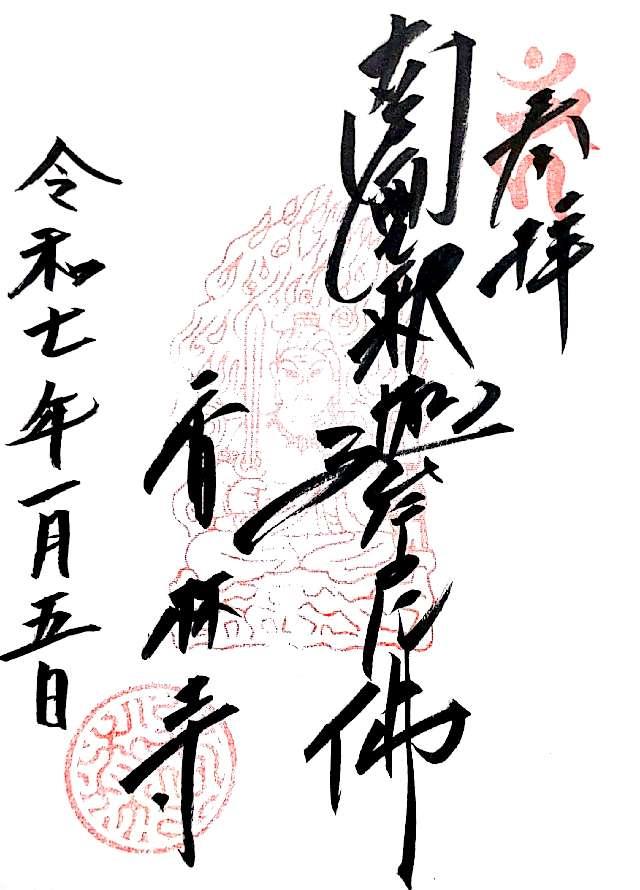 参拝
南無釈迦牟尼佛
香林寺
令和七年一月五日